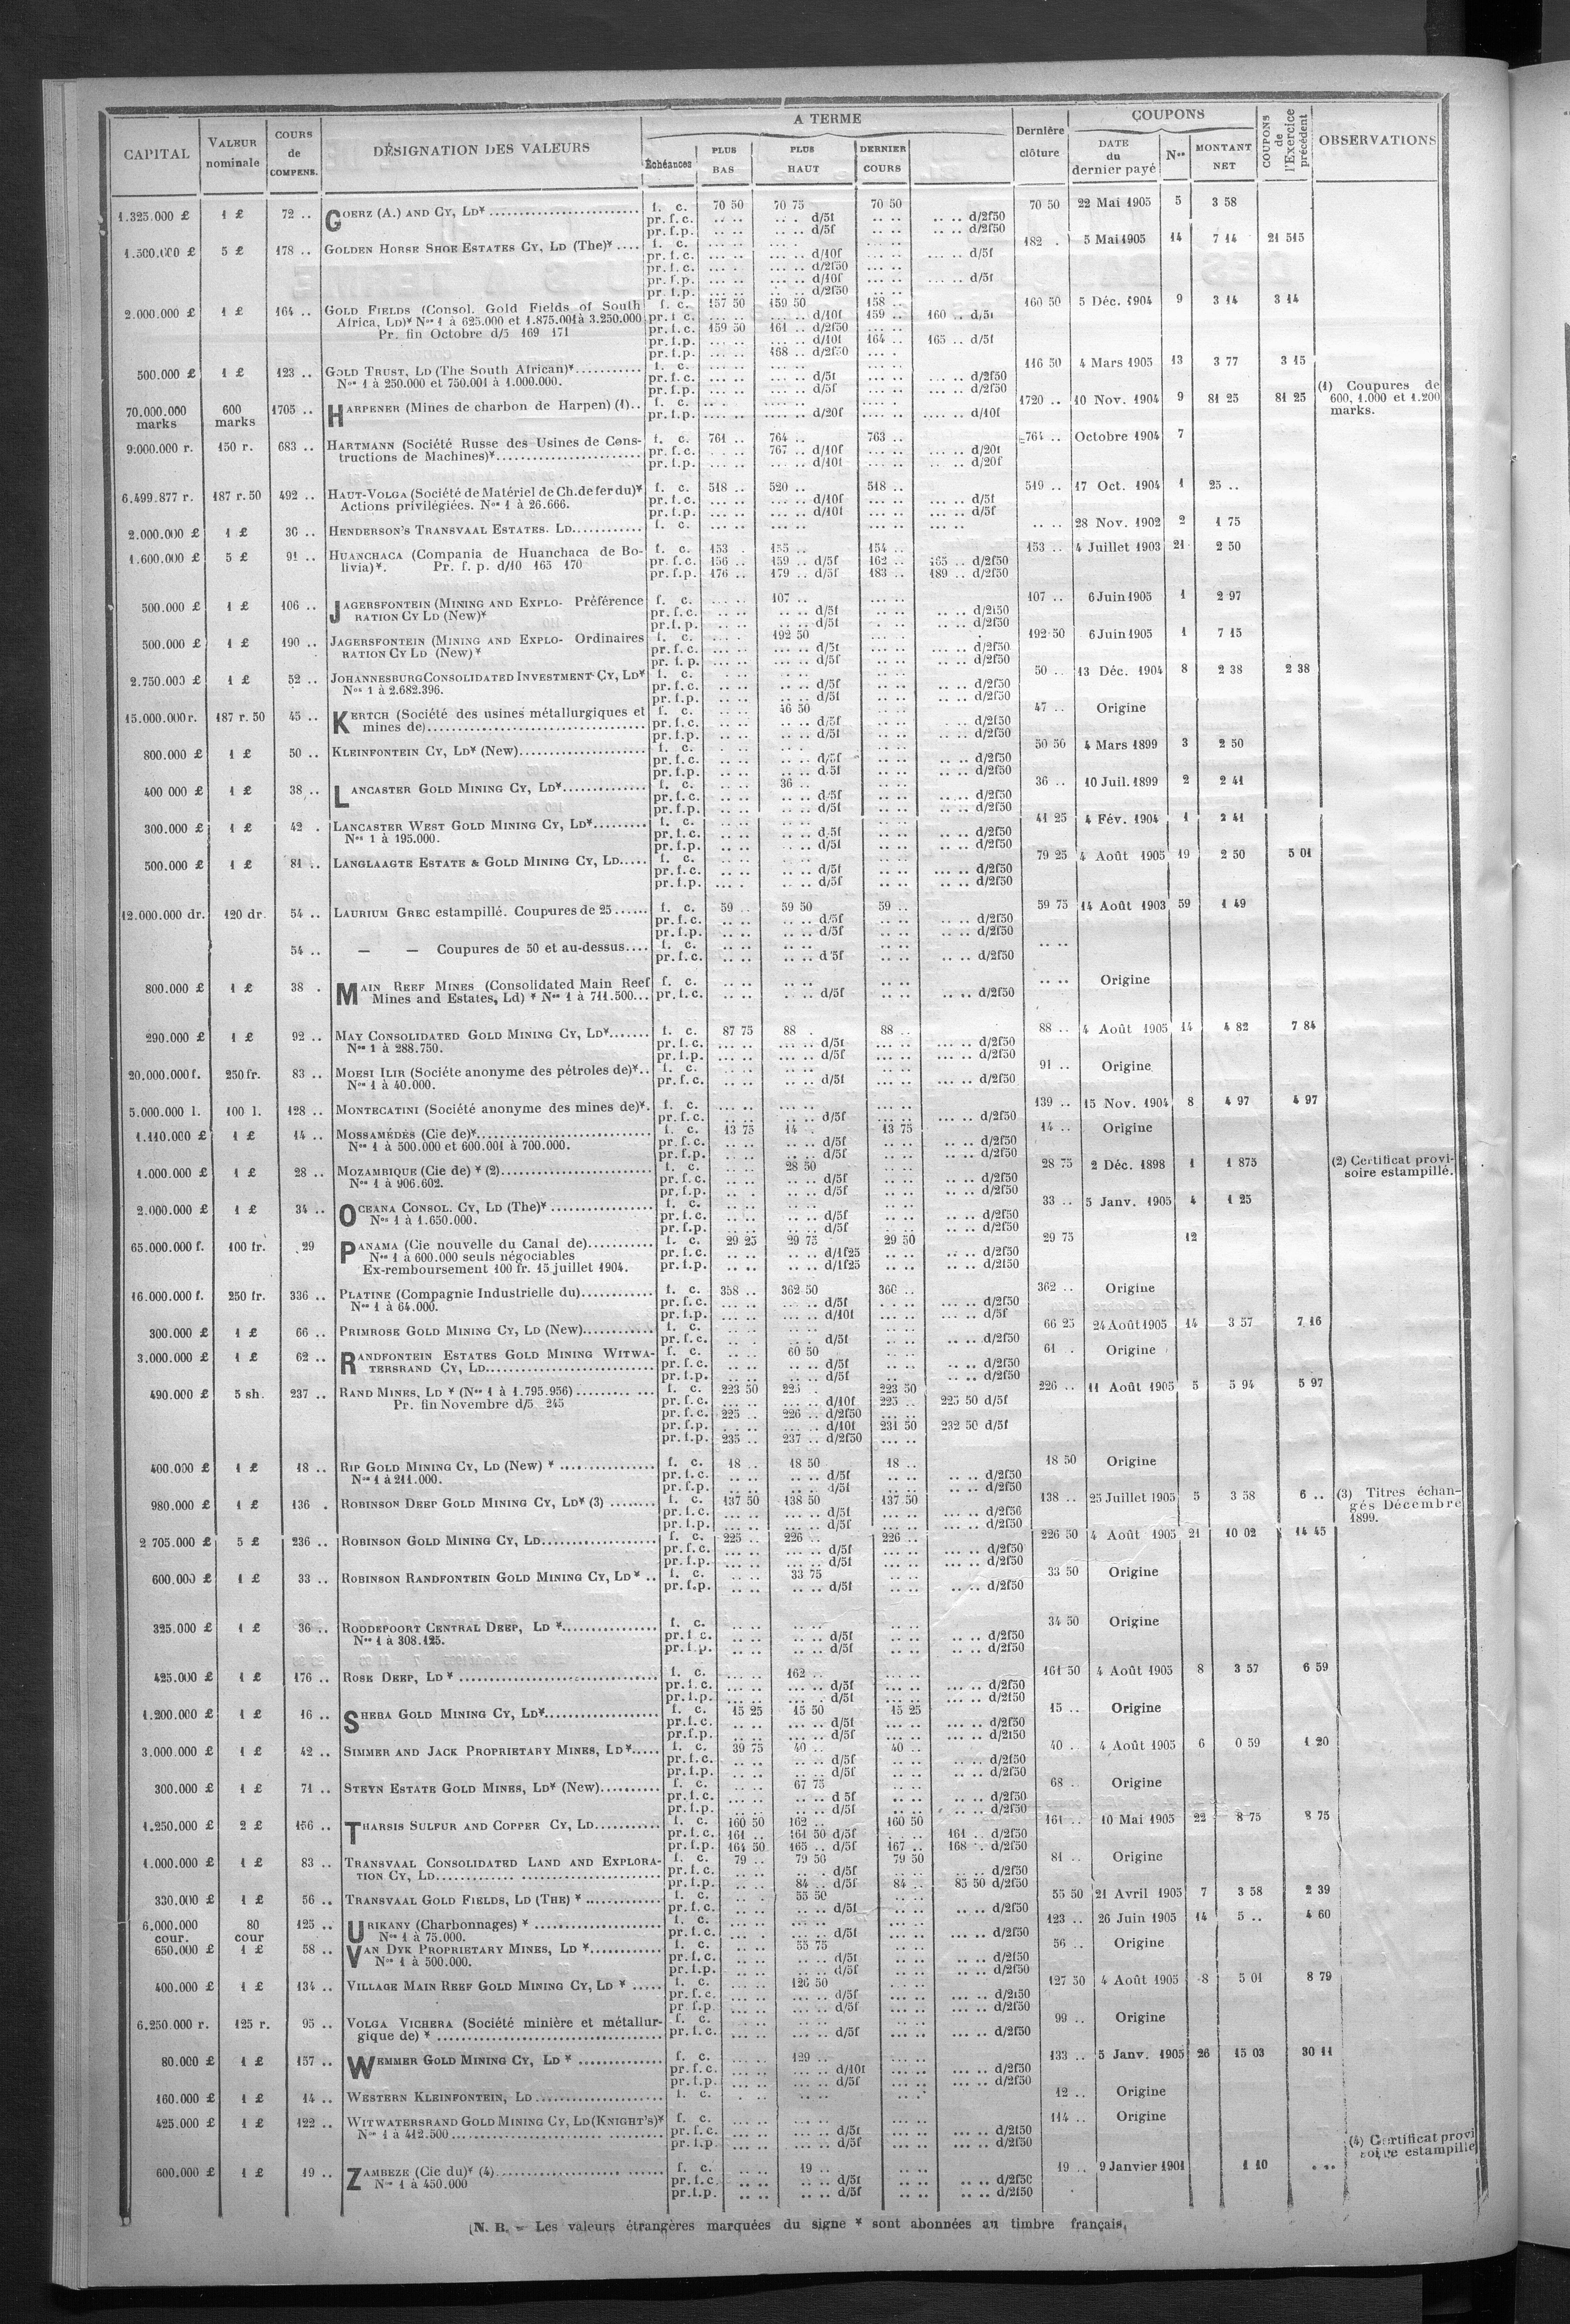 CAPITAL VALEUR nominale COURS de COMPENS. DÉSIGNATION DES VALEURS A TERME Échéances PLUS BAS PLUS HAUT DERNIER COURS Dernière clôture COUPONS DATE du dernier payé Nos MONTANT NET COUPONS de l'Exercice précédent OBSERVATIONS
1.325.000 £ 1 £ 72 .. GOERZ (A.) AND CY, LD* f. c. 70 50 70 75 70 50 70 50 22 Mai 1905 5 3 58
pr. f. c. .. .. .. . d/5f .. .. .. .. d/2f50
pr. f. p. .. .. .. .. d/5f .. .. .. .. d/2f50
1.500.000 £ 5 £ 178 .. GOLDEN HORSE SHOE ESTATES CY, LD (The)* f. c. 182 . 5 Mai 1905 14 7 14 21 515
pr. f. c. d/10f d/5f
pr. f. c. d/2f50
pr. f. p. d/10f d/5f
pr. f. p. d/2f50
2.000.000 £ 1 £ 164 .. GOLD FIELDS (Consol. Gold Fields of South f. c. 157 50 159 50 158 .. 160 50 5 Déc. 1904 9 3 14 3 14
Africa, LD)* Nos 1 à 625.000 et 1.875.001 à 3.250.000 pr. f. c. d/10f 159 .. 160 .. d/5f
Pr. fin Octobre d/5 169 171 pr. f. c. 159 50 161 .. d/2f50
pr. f. p. d/10f 164 .. 165 .. d/5f
pr. f. p. 168 .. d/2f50
500.000 £ 1 £ 123 .. GOLD TRUST, LD (The South African)* f. c. 116 50 4 Mars 1905 13 3 77 3 15
Nos 1 à 250.000 et 750.001 à 1.000.000. pr. f. c. d/5f d/2f50
pr. f. p. d/5f d/2f50
(1) Coupures de
600, 1.000 et 1.200
marks.
70.000.000 marks 600 marks 1705 .. HARPENER (Mines de charbon de Harpen) (1).. f. c. 1720 .. 10 Nov. 1904 9 81 25 81 25
pr. f. p. d/20f d/10f
9.000.000 r. 150 r. 683 .. HARTMANN (Société Russe des Usines de Cons- f. c. 761 .. 764 .. 763 .. 764 .. Octobre 1904 7
tructions de Machines)* pr. f. c. 767 .. d/10f d/20f
pr. f. p. d/10f d/20f
6.499.877 r. 187 r. 50 492 .. HAUT-VOLGA (Société de Matériel de Ch. de fer du)* f. c. 518 .. 520 .. 518 .. 519 .. 17 Oct. 1904 1 25 ..
Actions privilégiées. Nos 1 à 26.666. pr. f. c. d/10f d/5f
pr. f. p. d/10f d/5f
2.000.000 £ 1 £ 36 .. HENDERSON'S TRANSVAAL ESTATES. LD f. c. 28 Nov. 1902 2 1 75
1.600.000 £ 5 £ 91 .. HUANCHACA (Compania de Huanchaca de Bo- f. c. 153 . 155 .. 154 .. 153 .. 4 Juillet 1903 21 2 50
livia)*. Pr. f. p. d/10 165 170 pr. f. c. 156 .. 159 .. d/5f 162 .. 165 .. d/2f50
pr. f. p. 176 .. 179 .. d/5f 183 .. 189 .. d/2f50
500.000 £ 1 £ 106 .. JAGERSFONTEIN (MINING AND EXPLO- Préférence f. c. 107 .. 107 .. 6 Juin 1905 1 2 97
RATION CY LD (New)* pr. f. c. d/5f d/2f50
pr. f. p. d/5f d/2f50
500.000 £ 1 £ 190 .. JAGERSFONTEIN (MINING AND EXPLO- Ordinaires f. c. 192 50 192 50 6 Juin 1905 1 7 15
RATION CY LD (New)* pr. f. c. d/5f d/2f50
pr. f. p. d/5f d/2f50
2.750.000 £ 1 £ 52 .. JOHANNESBURG CONSOLIDATED INVESTMENT CY, LD* f. c. 50 .. 13 Déc. 1904 8 2 38 2 38
Nos 1 à 2.682.396. pr. f. c. d/5f d/2f50
pr. f. p. d/5f d/2f50
15.000.000 r. 187 r. 50 45 .. KERTCH (Société des usines métallurgiques et f. c. 46 50 47 .. Origine
mines de) pr. f. c. d/5f d/2f50
pr. f. p. d/5f d/2f50
800.000 £ 1 £ 50 .. KLEINFONTEIN CY, LD* (New) f. c. 50 50 4 Mars 1899 3 2 50
pr. f. c. d/5f d/2f50
pr. f. p. d/5f d/2f50
400 000 £ 1 £ 38 .. LANCASTER GOLD MINING CY, LD* f. c. 36 .. 36 .. 10 Juil. 1899 2 2 41
pr. f. c. d/5f d/2f50
pr. f. p. d/5f d/2f50
300.000 £ 1 £ 42 . LANCASTER WEST GOLD MINING CY, LD* f. c. 41 25 4 Fév. 1904 1 2 41
Nos 1 à 195.000. pr. f. c. d/5f d/2f50
pr. f. p. d/5f d/2f50
500.000 £ 1 £ 81 .. LANGLAAGTE ESTATE & GOLD MINING CY, LD f. c. 79 25 4 Août 1905 19 2 50 5 01
pr. f. c. d/5f d/2f50
pr. f. p. d/5f d/2f50
12.000.000 dr. 120 dr. 54 .. LAURIUM GREC estampillé. Coupures de 25 f. c. 59 .. 59 50 59 .. 59 75 14 Août 1903 59 1 49
pr. f. c. d/5f d/2f50
pr. f. p. d/5f d/2f50
54 .. — — Coupures de 50 et au-dessus f. c.
pr. f. c. d/5f d/2f50
800.000 £ 1 £ 38 . MAIN REEF MINES (Consolidated Main Reef f. c. Origine
Mines and Estates, Ld) * Nos 1 à 711.500 pr. f. c. d/5f d/2f50
290.000 £ 1 £ 92 .. MAY CONSOLIDATED GOLD MINING CY, LD* f. c. 87 75 88 . 88 .. 88 .. 4 Août 1905 14 4 82 7 84
Nos 1 à 288.750. pr. f. c. d/5f d/2f50
pr. f. p. d/5f d/2f50
20.000.000 f. 250 fr. 83 .. MOESI ILIR (Sociéte anonyme des pétroles de)* f. c. 91 .. Origine
Nos 1 à 40.000. pr. f. c. d/5f d/2f50
5.000.000 l. 100 l. 128 .. MONTECATINI (Société anonyme des mines de)*. f. c. 139 .. 15 Nov. 1904 8 4 97 4 97
pr. f. c. d/5f d/2f50
1.110.000 £ 1 £ 14 .. MOSSAMÉDÈS (Cie de)* f. c. 13 75 14 .. 13 75 14 .. Origine
Nos 1 à 500.000 et 600.001 à 700.000. pr. f. c. d/5f d/2f50
pr. f. p. d/5f d/2f50
1.000.000 £ 1 £ 28 .. MOZAMBIQUE (Cie de) * (2) f. c. 28 50 28 75 2 Déc. 1898 1 1 875 (2) Certificat provi-
Nos 1 à 906.602. pr. f. c. d/5f d/2f50 soire estampillé.
pr. f. p. d/5f d/2f50
2.000.000 £ 1 £ 34 .. OCEANA CONSOL. CY, LD (The)* f. c. 33 .. 5 Janv. 1905 4 1 25
Nos 1 à 1.650.000. pr. f. c. d/5f d/2f50
pr. f. p. d/5f d/2f50
65.000.000 f. 100 fr. 29 PANAMA (Cie nouvelle du Canal de) f. c. 29 25 29 75 29 50 29 75 12
Nos 1 à 600.000 seuls négociables pr. f. c. d/1f25 d/2f50
Ex-remboursement 100 fr. 15 juillet 1904. pr. f. p. d/1f25 d/2f50
16.000.000 f. 250 fr. 336 .. PLATINE (Compagnie Industrielle du) f. c. 358 .. 362 50 360 .. 362 .. Origine
Nos 1 à 64.000. pr. f. c. d/5f d/2f50
pr. f. p. d/10f d/5f
300.000 £ 1 £ 66 .. PRIMROSE GOLD MINING CY, LD (New) f. c. 66 25 24 Août 1905 14 3 57 7 16
pr. f. c. d/5f d/2f50
3.000.000 £ 1 £ 62 .. RANDFONTEIN ESTATES GOLD MINING WITWA- f. c. 60 50 61 .. Origine
TERSRAND CY, LD pr. f. c. d/5f d/2f50
pr. f. p. d/5f d/2f50
490.000 £ 5 sh. 237 .. RAND MINES, LD * (Nos 1 à 1.795.956) f. c. 223 50 225 . 223 50 226 .. 11 Août 1905 5 5 94 5 97
Pr. fin Novembre d/5 245 pr. f. c. d/10f 225 .. 225 50 d/5f
pr. f. c. 225 .. 226 .. d/2f50
pr. f. p. d/10f 231 50 232 50 d/5f
pr. f. p. 235 .. 237 .. d/2f50
400.000 £ 1 £ 18 .. RIP GOLD MINING CY, LD (New) * f. c. 18 .. 18 50 18 .. 18 50 Origine
Nos 1 à 211.000. pr. f. c. d/5f d/2f50
pr. f. p. d/5f d/2f50
980.000 £ 1 £ 136 . ROBINSON DEEP GOLD MINING CY, LD* (3) f. c. 137 50 138 50 137 50 138 .. 25 Juillet 1905 5 3 58 6 .. (3) Titres échan-
pr. f. c. d/5f d/2f50 gés Décembre
pr. f. p. d/5f d/2f50 1899.
2 705.000 £ 5 £ 236 .. ROBINSON GOLD MINING CY, LD f. c. 225 .. 226 .. 226 .. 226 50 4 Août 1905 21 10 02 14 45
pr. f. c. d/5f d/2f50
pr. f. p. d/5f d/2f50
600.000 £ 1 £ 33 .. ROBINSON RANDFONTEIN GOLD MINING CY, LD* f. c. 33 75 33 50 Origine
pr. f. p. d/5f d/2f50
325.000 £ 1 £ 36 .. ROODEPOORT CENTRAL DEEP, LD * f. c. 34 50 Origine
Nos 1 à 308.125. pr. f. c. d/5f d/2f50
pr. f. p. d/5f d/2f50
425.000 £ 1 £ 176 .. ROSE DEEP, LD * f. c. 162 .. 161 50 4 Août 1905 8 3 57 6 59
pr. f. c. d/5f d/2f50
pr. f. p. d/5f d/2f50
1.200.000 £ 1 £ 16 .. SHEBA GOLD MINING CY, LD* f. c. 15 25 15 50 15 25 15 .. Origine
pr. f. c. d/5f d/2f50
pr. f. p. d/5f d/2f50
3.000.000 £ 1 £ 42 .. SIMMER AND JACK PROPRIETARY MINES, LD* f. c. 39 75 40 .. 40 .. 40 .. 4 Août 1905 6 0 59 1 20
pr. f. c. d/5f d/2f50
pr. f. p. d/5f d/2f50
300.000 £ 1 £ 71 .. STEYN ESTATE GOLD MINES, LD* (New) f. c. 67 75 68 .. Origine
pr. f. c. d 5f d/2f50
pr. f. p. d/5f d/2f50
1.250.000 £ 2 £ 156 .. THARSIS SULFUR AND COPPER CY, LD f. c. 160 50 162 .. 160 50 161 .. 10 Mai 1905 22 8 75 8 75
pr. f. c. 161 .. 161 50 d/5f 161 .. d/2f50
pr. f. p. 164 50 165 .. d/5f 167 .. 168 .. d/2f50
1.000.000 £ 1 £ 83 .. TRANSVAAL CONSOLIDATED LAND AND EXPLORA- f. c. 79 .. 79 50 79 50 81 .. Origine
TION CY, LD pr. f. c. d/5f d/2f50
pr. f. p. 84 .. d/5f 84 .. 85 50 d/2f50
330.000 £ 1 £ 56 .. TRANSVAAL GOLD FIELDS, LD (THE) * f. c. 55 50 55 50 21 Avril 1905 7 3 58 2 39
pr. f. c. d/5f d/2f50
6.000.000 cour. 80 cour 125 .. URIKANY (Charbonnages) * f. c. 123 .. 26 Juin 1905 14 5 .. 4 60
Nos 1 à 75.000. pr. f. c. d/5f d/2f50
650.000 £ 1 £ 58 .. VAN DYK PROPRIETARY MINES, LD * f. c. 55 75 56 .. Origine
Nos 1 à 500.000. pr. f. c. d/5f d/2f50
pr. f. p. d/5f d/2f50
400.000 £ 1 £ 134 .. VILLAGE MAIN REEF GOLD MINING CY, LD * f. c. 126 50 127 50 4 Août 1905 8 5 01 8 79
pr. f. c. d/5f d/2f50
pr f. p. d/5f d/2f50
6.250.000 r. 125 r. 95 .. VOLGA VICHERA (Société minière et métallur- f. c. 99 .. Origine
gique de) * pr. f. c. d/5f d/2f50
80.000 £ 1 £ 157 .. WEMMER GOLD MINING CY, LD * f. c. 129 .. 133 .. 5 Janv. 1905 26 15 03 30 11
pr. f. c. d/10f d/2f50
pr. f. p. d/5f d/2f50
160.000 £ 1 £ 14 .. WESTERN KLEINFONTEIN, LD f. c. 12 .. Origine
425.000 £ 1 £ 122 .. WITWATERSRAND GOLD MINING CY, LD (KNIGHT'S)* f. c. 114 .. Origine
Nos 1 à 412.500 pr. f. c. d/5f d/2f50
pr. f. p. d/5f d/2f50
(4) Certificat provi
soire estampillé
600.000 £ 1 £ 19 .. ZAMBEZE (Cie du)* (4) f. c. 19 .. 19 .. 9 Janvier 1901 1 10
Nos 1 à 450.000 pr. f. c. d/5f d/2f50
pr. f. p. d/5f d/2f50
N. B. — Les valeurs étrangères marquées du signe * sont abonnées au timbre français.